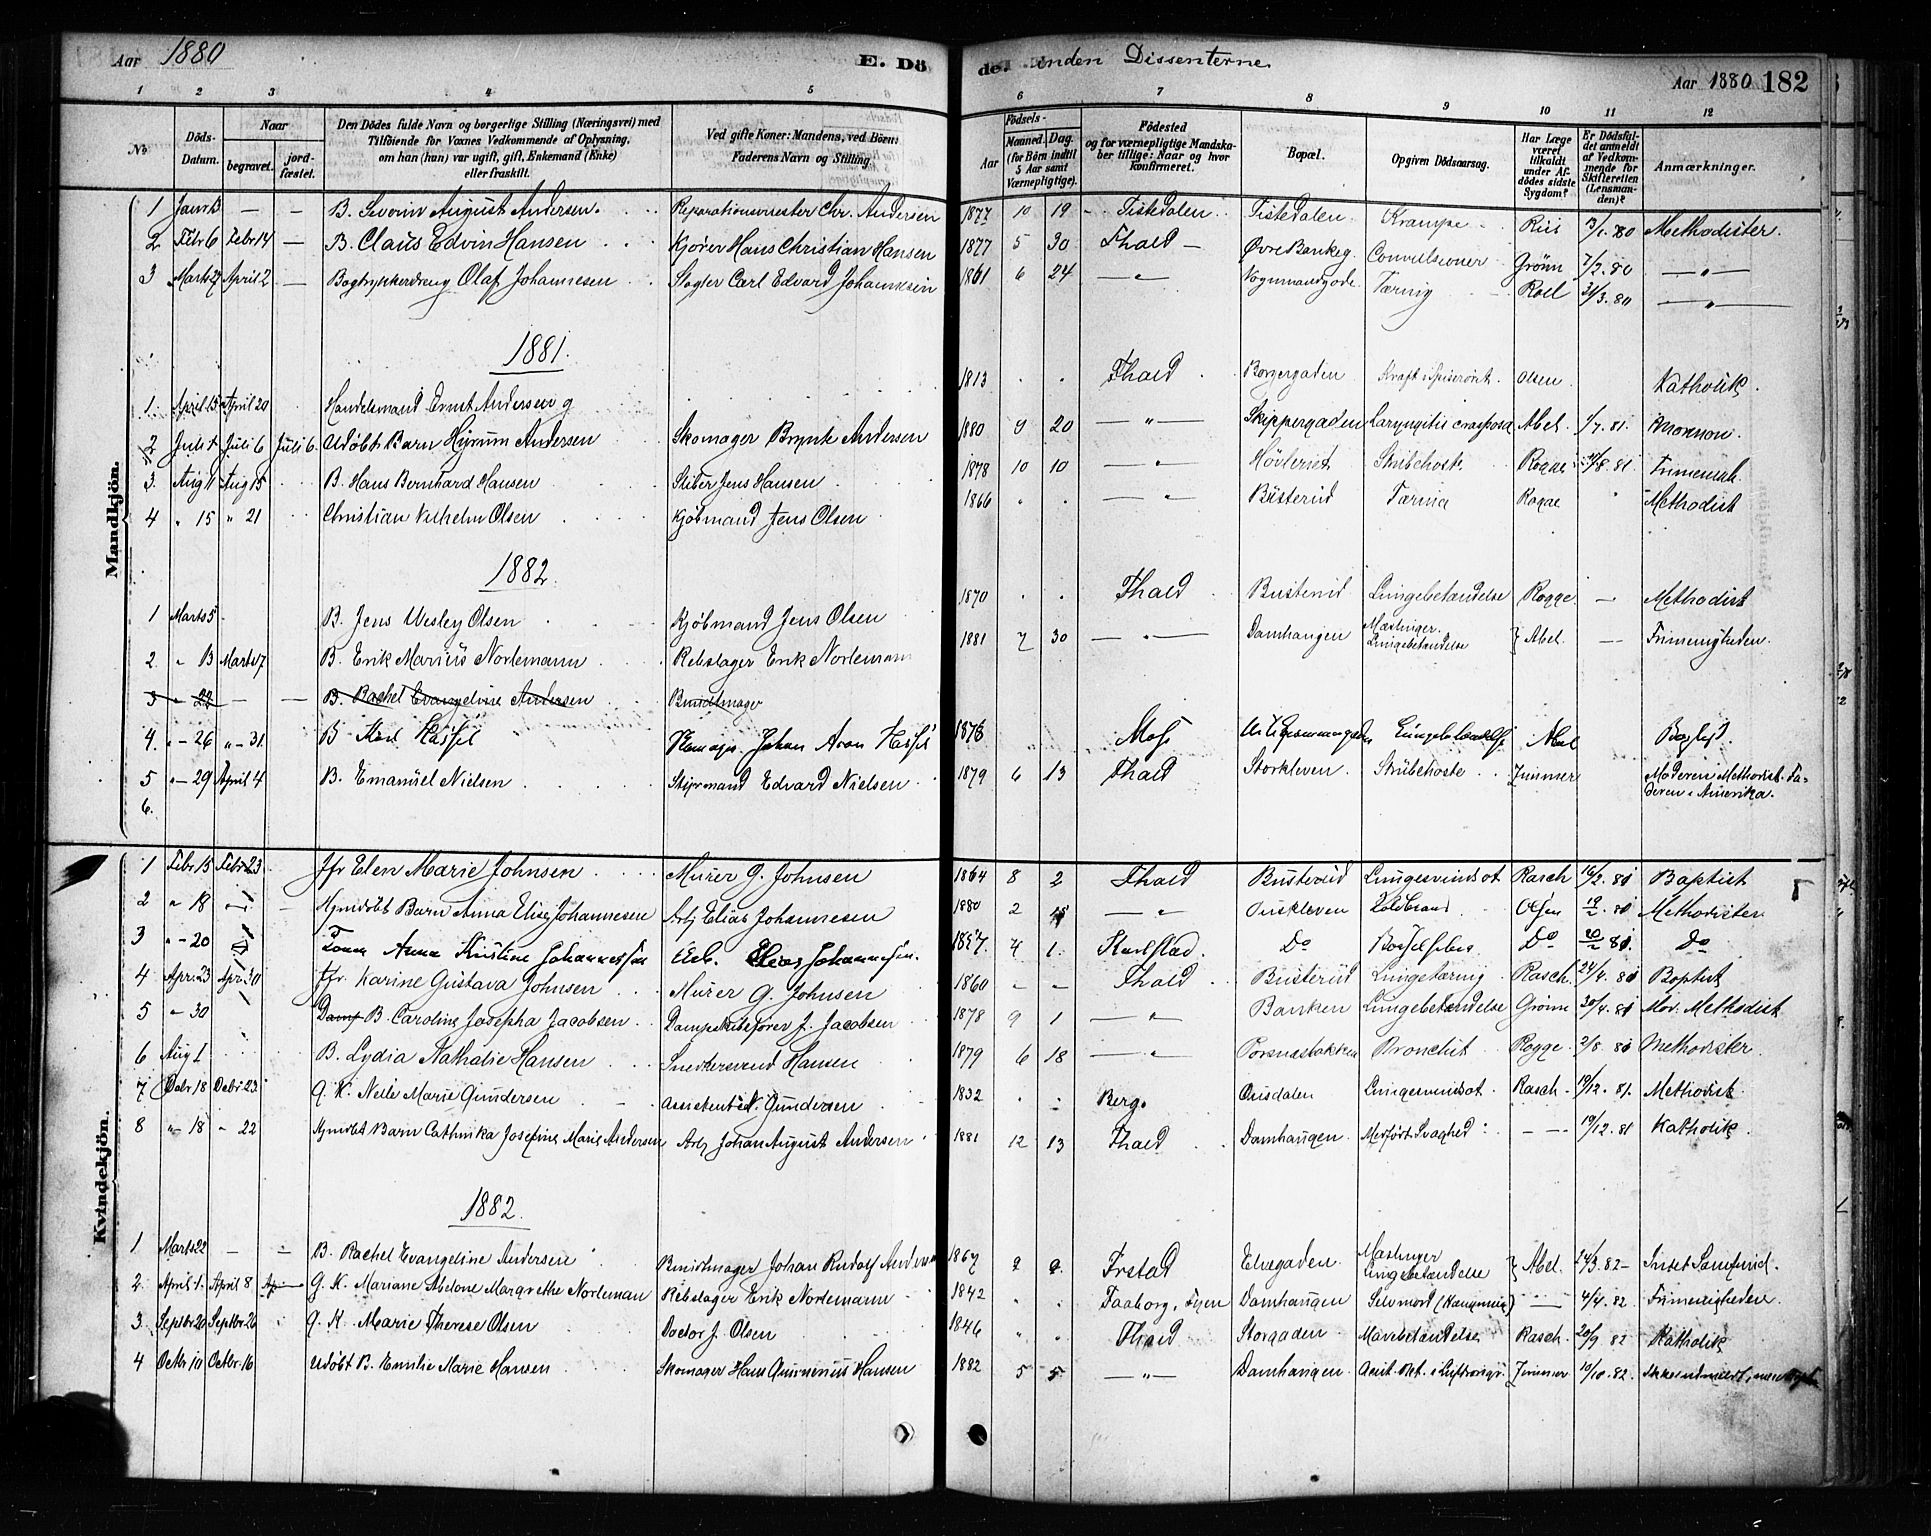 Aar 1880
E. Dö
de. inden Dissenterne.
Aar 1880 182
1 2 3 4 5 6 7 8 9 10 11 12
No
Döds-Datum.
Naar
begravet.
jord-fæstet.
Den Dödes fulde Navn og borgerlige Stilling (Næringsvei) med
Tilföiende for Voxnes Vedkommende af Oplysning,
om han (hun) var ugift, gift, Enkemand (Enke)
eller fraskilt.
Ved gifte Koner: Mandens, ved Börn:
Faderens Navn og Stilling.
Födsels-
Aar
Maaned. Dag.
(for Börn indtil
5 Aar samt
Værnepligtige).
Födested
og for værnepligtige Mandska-
ber tillige: Naar og hvor
konfirmeret.
Bopæl.
Opgiven Dödsaarsag.
Har Læge
været
tilkaldt
under Af-
dödes sidste
Sygdom?
Er Dödsfal-
det anmeldt
af Vedkom-
mende for
Skifteretten
(Lensman-
den)?
Anmærkninger.
Mandkjön.
1 Janr 13 — — B. Severin August Andersen. Reparationsmester Chr. Andersen 1877 10 19 Tistedalen Tistedalen Krampe Riis 13/1. 80 Methodister.
2 Febr 6 Febr 14 — B. Claus Edvin Hansen Kjører Hans Christian Hansen 1877 5 30 Fhald — Øvre Bankeg. Convulsioner Grønn 7/2. 80 — " —
3 Marts 27 April 2 — Bogtrykkerdreng Olaf Johannesen Slagter Carl Edvard Johannesen 1861 6 24 — " — Vognmandgade Tæring Roll 31/3. 80 — " —
1881.
1. April 15 April 20 Handelsmand Ernst Andersen g 1813 Fhald Borgergaden Kræft i Spiserøret Olsen Katholik.
2 Juli 1 Juli 6 Juli 6. Udøbt Barn Hyrum Andersen Skomager Brynte Andersen 1880 9 20 — " — Skippergaden Laryngitis crouposa Abel 1/7. 81. Mormon.
3. Aug 11 Aug 15 B. Hans Bernhard Hansen Sliber Jens Hansen 1878 10 10 — " — Høvleriet Strubehoste Rogge 11/8. 81 Frimenigh.
4 " 15 " 21 Christian Vilhelm Olsen Kjøbmand Jens Olsen 1866 — " — Busterud Tæring Rogge Methodist
1882
1 Marts 5 B. Jens Wesley Olsen Kjøbmand Jens Olsen 1870 Fhald Busterud Lungebetændelse Rogge — Methodist
2. " 13 Marts 17 B. Erik Marius Nortemann Rebslager Erik Nortemann 1881 7 30 — " — Damhaugen Mæslinger. Lungebetændelse } Abel — Frimenigheden.
3 " 22 — — B. Rachel Evangeline Andersen Buntmager
4. " — 26 " — 31. B Karl Hassel Skomager Johan Aron Hassel 1876 Moss Lungebetændelse Abel
5 " — 29 April 4 B. Emanuel Nielsen Styrmand Edvard Nielsen 1879 6 13 Fhald Storkleven Strubehoste Zimmer Moderen Methodist. Fa-
deren i Amerika.
6.
Kvindekjön.
1 Febr 15 Febr 23 Jfr Elen Marie Johnsen Murer G. Johnsen 1864 8 2 Fhald Busterud Lungesvindsot Rasch 16/2. 81 Baptist
2 " 18 Hjemdøbt Barn Anna Elise Johannesen Arb. Elias Johannesen 1880 2 — " — Ouskleven Koldbrand Olsen 19/2. 81 Methodister
3 " — 20 Kone Anna Kristine Johannessen Arb. Elias Johannesen. 1857. 4 1. Karlstad Do Do 20/2 81. Do
4 April 23 April 30 Jfr. Karine Gustava Johnsen Murer G. Johnsen 1860 — — Fhald Busterud Lungetæring Rasch. 24/4. 81 Baptist
5 " 30 Damp B. Caroline Josepha Jacobsen Dampskibsfører J. Jacobsen 1878 9 1 — " — Banken Lungebetændelse Grønn 30/4. 81 Mor. Methodist
6 Aug 1 B. Lydia Nathalie Hansen Snedkersvend Hansen 1879 6 18 — " — Porsnæsbakken Bronchit Rogge 2/8. 81 Methodister
7 Decbr 18 Decbr 23 G. K. Nelle Marie Gundersen Assistent N. Gundersen 1832 Berg. Ousdalen Lungesvindsot. Rasch 19/12. 81. Methodist
8 " 18 " 22 Hjemdøbt Barn Cathinka Josefine Marie Andersen Arb. Johan August Andersen 1881 12 13 Fhald Damhaugen Medfødt Svaghed — — 19/12. 81 Katholik
1882.
1 Marts 22 — B. Rachel Evangeline Andersen Buntmager Johan Rudolf Andersen 1867 9 9. Frstad Elvegaden Mæslinger Lungebetændelse } Abel. 24/3. 82 — Intet Samfund.
2. April 1. April 8 G. K. Mariane Abelone Margrethe Norteman Rebslager Erik Nortemann 1842 Faaborg, Fyen Damhaugen Selvmord (Hængning) — 4/4. 82 Frimenigheden.
3. Septbr 20 Septbr 26 G. K. Marie Therese Olsen Doctor J. Olsen 1846 " " Fhald Storgaden Mavebetændelse Rasch 20/9 82 Katholik
4 Octbr 10 Octbr. 16 Udøbt B. Emilie Marie Hansen Skomager Hans Gunnerius Hansen 1882 5 5 — " — Damhaugen Acut. Kat. i Luftrørsgr. Zimmer 10/10. 82. Ikke udmeldt, men